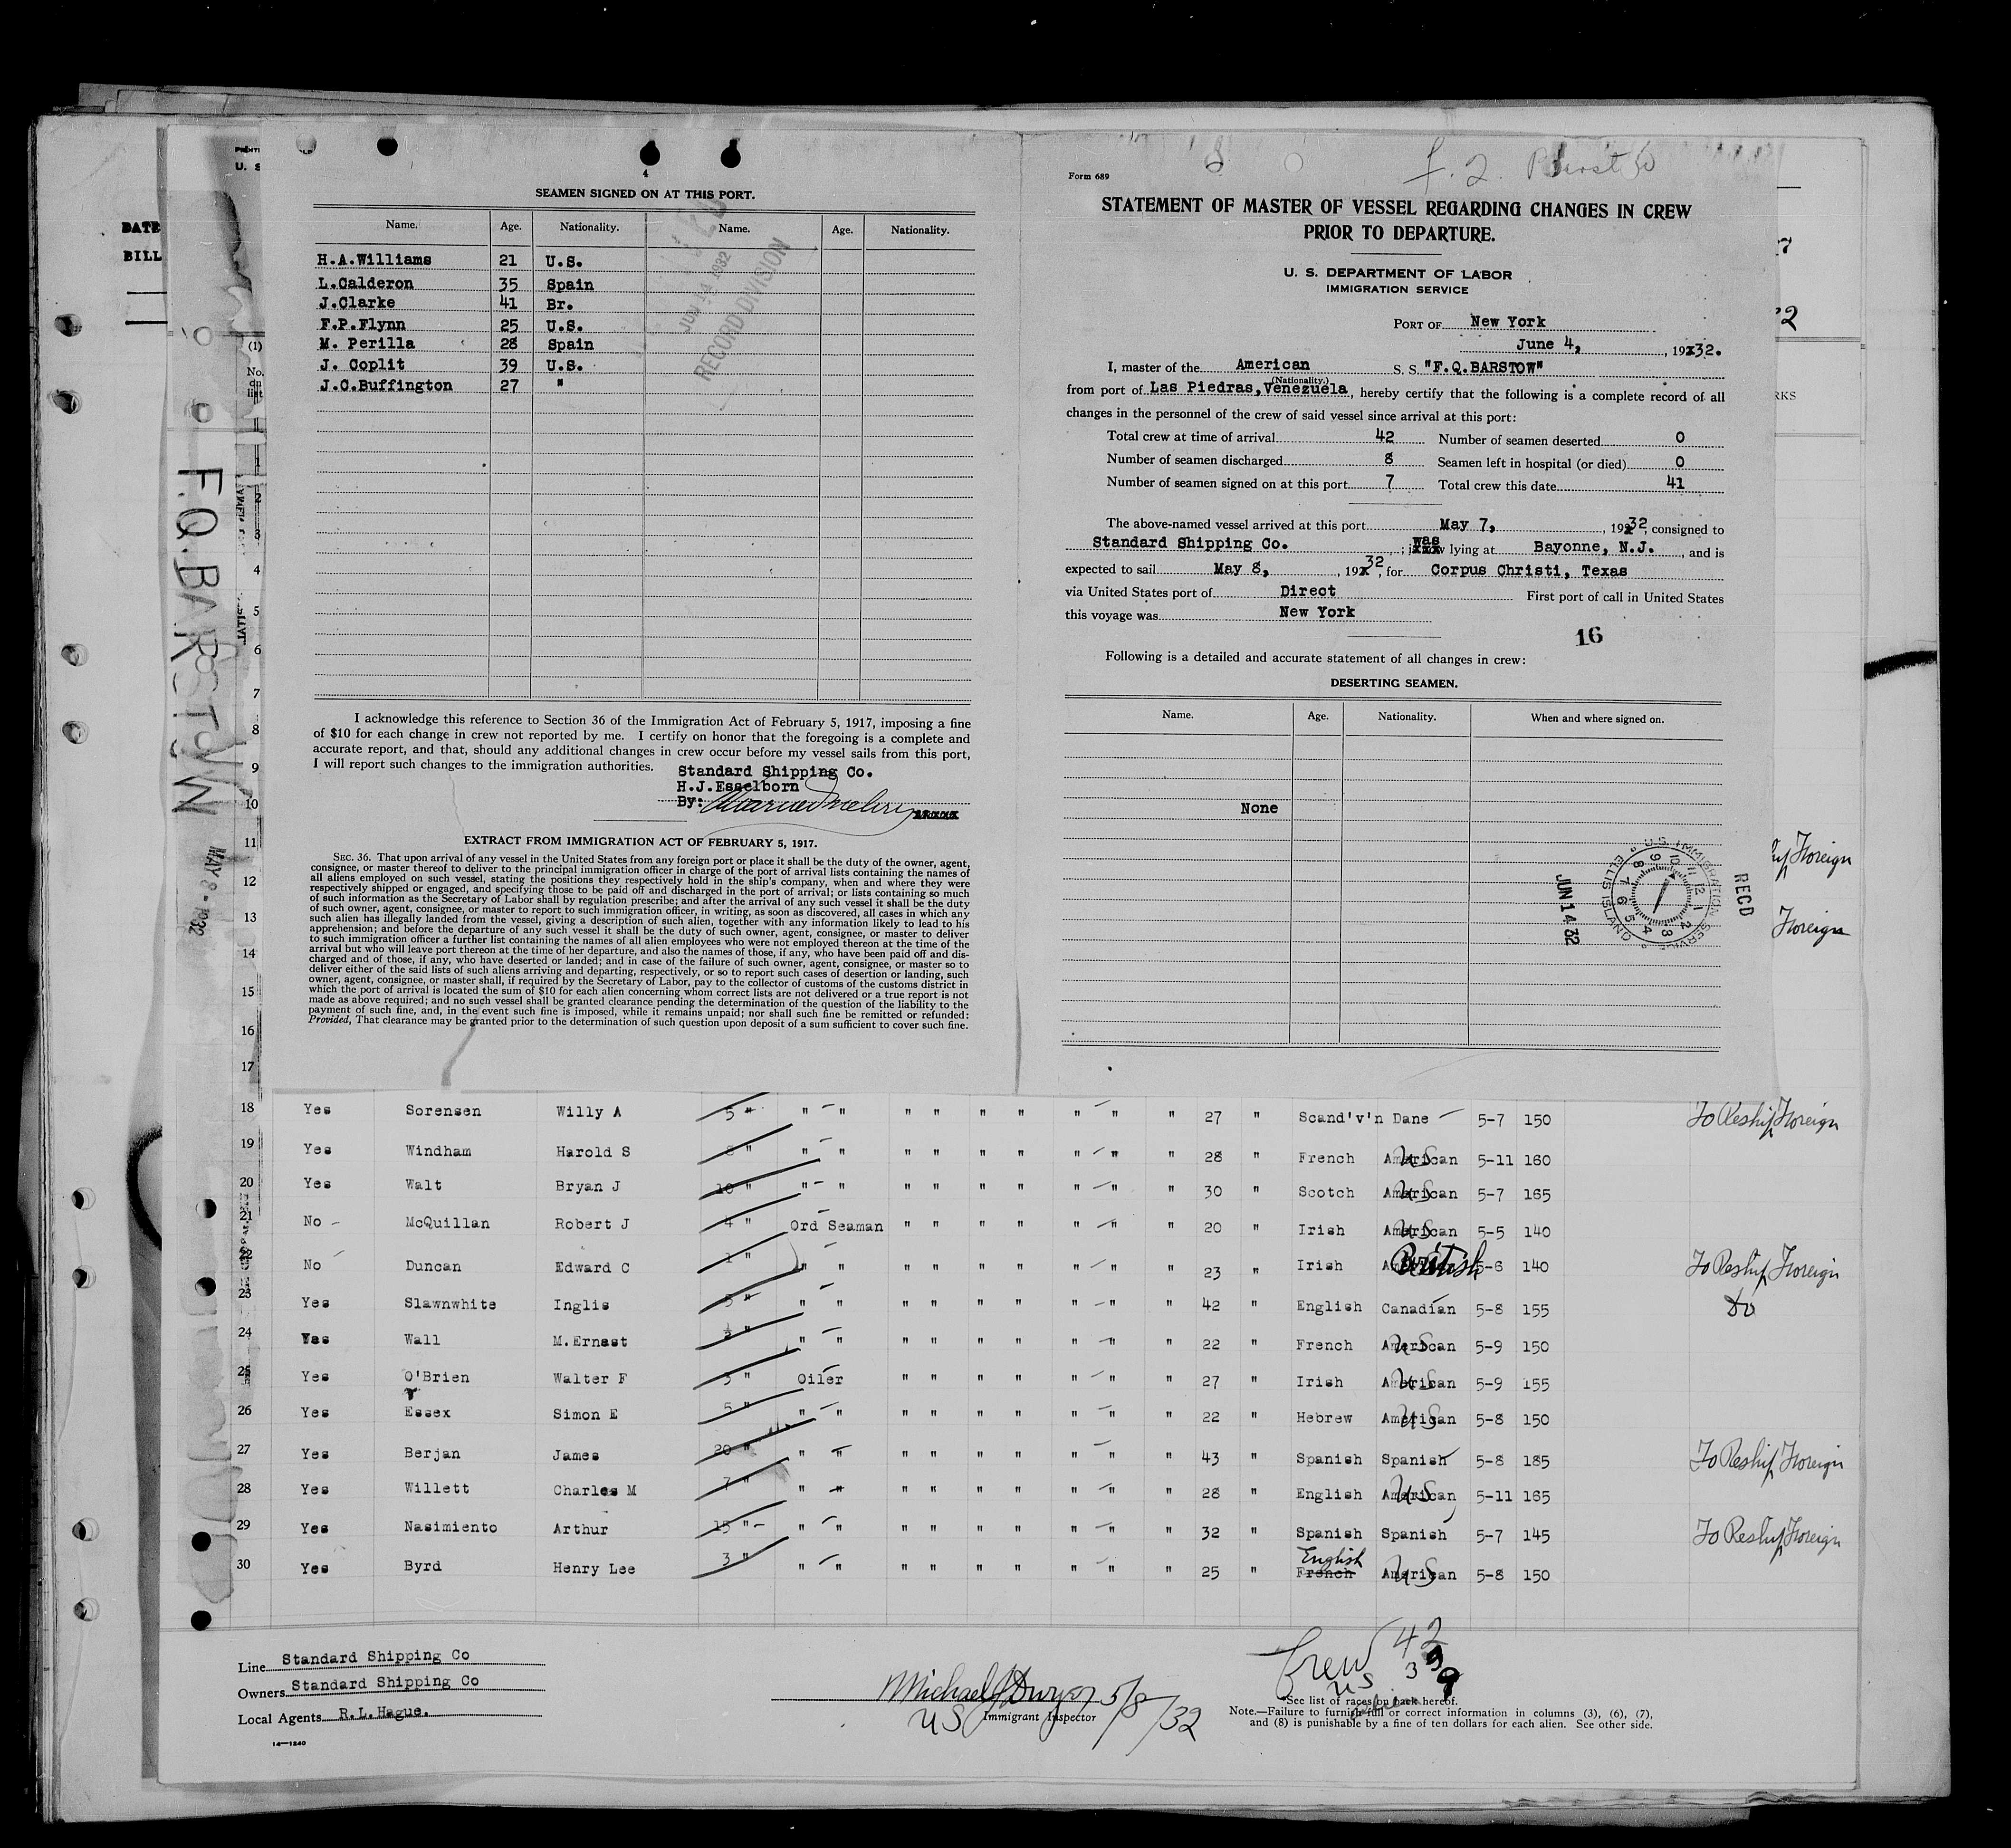 4
SEAMEN SIGNED ON AT THIS PORT.
Name. Age. Nationality. Name. Age. Nationality.
H.A.Williams 21 U.S.
L.Calderon 35 Spain
J.Clarke 41 Br.
F.P.Flynn 25 U.S.
M. Perilla 28 Spain
J. Coplit 39 U.S.
J.C.Buffington 27 "
JUN 14 1932
RECORD DIVISION
I acknowledge this reference to Section 36 of the Immigration Act of February 5, 1917, imposing a fine
of $10 for each change in crew not reported by me. I certify on honor that the foregoing is a complete and
accurate report, and that, should any additional changes in crew occur before my vessel sails from this port,
I will report such changes to the immigration authorities.
Standard Shipping Co.
H.J.Esselborn
By:
EXTRACT FROM IMMIGRATION ACT OF FEBRUARY 5, 1917.
SEC. 36. That upon arrival of any vessel in the United States from any foreign port or place it shall be the duty of the owner, agent,
consignee, or master thereof to deliver to the principal immigration officer in charge of the port of arrival lists containing the names of
all aliens employed on such vessel, stating the positions they respectively hold in the ship's company, when and where they were
respectively shipped or engaged, and specifying those to be paid off and discharged in the port of arrival; or lists containing so much
of such information as the Secretary of Labor shall by regulation prescribe; and after the arrival of any such vessel it shall be the duty
of such owner, agent, consignee, or master to report to such immigration officer, in writing, as soon as discovered, all cases in which any
such alien has illegally landed from the vessel, giving a description of such alien, together with any information likely to lead to his
apprehension; and before the departure of any such vessel it shall be the duty of such owner, agent, consignee, or master to deliver
to such immigration officer a further list containing the names of all alien employees who were not employed thereon at the time of the
arrival but who will leave port thereon at the time of her departure, and also the names of those, if any, who have been paid off and dis-
charged and of those, if any, who have deserted or landed; and in case of the failure of such owner, agent, consignee, or master so to
deliver either of the said lists of such aliens arriving and departing, respectively, or so to report such cases of desertion or landing, such
owner, agent, consignee, or master shall, if required by the Secretary of Labor, pay to the collector of customs of the customs district in
which the port of arrival is located the sum of $10 for each alien concerning whom correct lists are not delivered or a true report is not
made as above required; and no such vessel shall be granted clearance pending the determination of the question of the liability to the
payment of such fine, and, in the event such fine is imposed, while it remains unpaid; nor shall such fine be remitted or refunded:
Provided, That clearance may be granted prior to the determination of such question upon deposit of a sum sufficient to cover such fine.
Form 689
STATEMENT OF MASTER OF VESSEL REGARDING CHANGES IN CREW
PRIOR TO DEPARTURE.
U. S. DEPARTMENT OF LABOR
IMMIGRATION SERVICE
PORT OF New York
June 4, 1932.
I, master of the American S. S. "F.Q.BARSTOW"
(Nationality.)
from port of Las Piedras,Venezuela, hereby certify that the following is a complete record of all
changes in the personnel of the crew of said vessel since arrival at this port:
Total crew at time of arrival 42 Number of seamen deserted 0
Number of seamen discharged 8 Seamen left in hospital (or died) 0
Number of seamen signed on at this port 7 Total crew this date 41
The above-named vessel arrived at this port May 7, 1932, consigned to
Standard Shipping Co.; was lying at Bayonne, N.J., and is
expected to sail May 8, 1932, for Corpus Christi, Texas
via United States port of Direct First port of call in United States
this voyage was New York
16
Following is a detailed and accurate statement of all changes in crew:
DESERTING SEAMEN.
Name. Age. Nationality. When and where signed on.
None
U.S. IMMIGRATION SERVICE
ELLIS ISLAND
RECD
JUN 14 32
DATE
BILL
F.Q.BARSTOW
MAY 8 - 1932
(1)
No. on list
1
2
3
4
5
6
7
8
9
10
11
12
13
14
15
16
17
Foreign
Foreign
18 Yes Sorensen Willy A 5 " " " " " " " " " " 27 " Scand'v'n Dane 5-7 150 To Reship Foreign
19 Yes Windham Harold S 8 " " " " " " " " " " 28 " French American US 5-11 160
20 Yes Walt Bryan J 10 " " " " " " " " " " 30 " Scotch American US 5-7 165
21 No McQuillan Robert J 4 " Ord Seaman " " " " " " " 20 " Irish American US 5-5 140
22 No Duncan Edward C 1 " " " " " " " " " " 23 " Irish British 5-6 140 To Reship Foreign
23 Yes Slawnwhite Inglis 5 " " " " " " " " " " 42 " English Canadian 5-8 155 do
24 Wall M.Ernast " " " " " " " " " " 22 " French American US 5-9 150
25 Yes O'Brien Walter F 3 " Oiler " " " " " " " 27 " Irish American US 5-9 155
26 Yes Essex Simon E 5 " " " " " " " " " " 22 " Hebrew American US 5-8 150
27 Yes Berjan James 20 " " " " " " " " " " 43 " Spanish Spanish 5-8 185 To Reship Foreign
28 Yes Willett Charles M 7 " " " " " " " " " " 28 " English American US 5-11 165
29 Yes Nasimiento Arthur 15 " " " " " " " " " " 32 " Spanish Spanish 5-7 145 To Reship Foreign
30 Yes Byrd Henry Lee 3 " " " " " " " " " " 25 " French English American US 5-8 150
Line Standard Shipping Co
Owners Standard Shipping Co
Local Agents R.L.Hague.
14—1240
Michael J Dwyer 5/8/32
US Immigrant Inspector
Crew 42
US 3
See list of races on back hereof.
Note.—Failure to furnish full or correct information in columns (3), (6), (7),
and (8) is punishable by a fine of ten dollars for each alien. See other side.